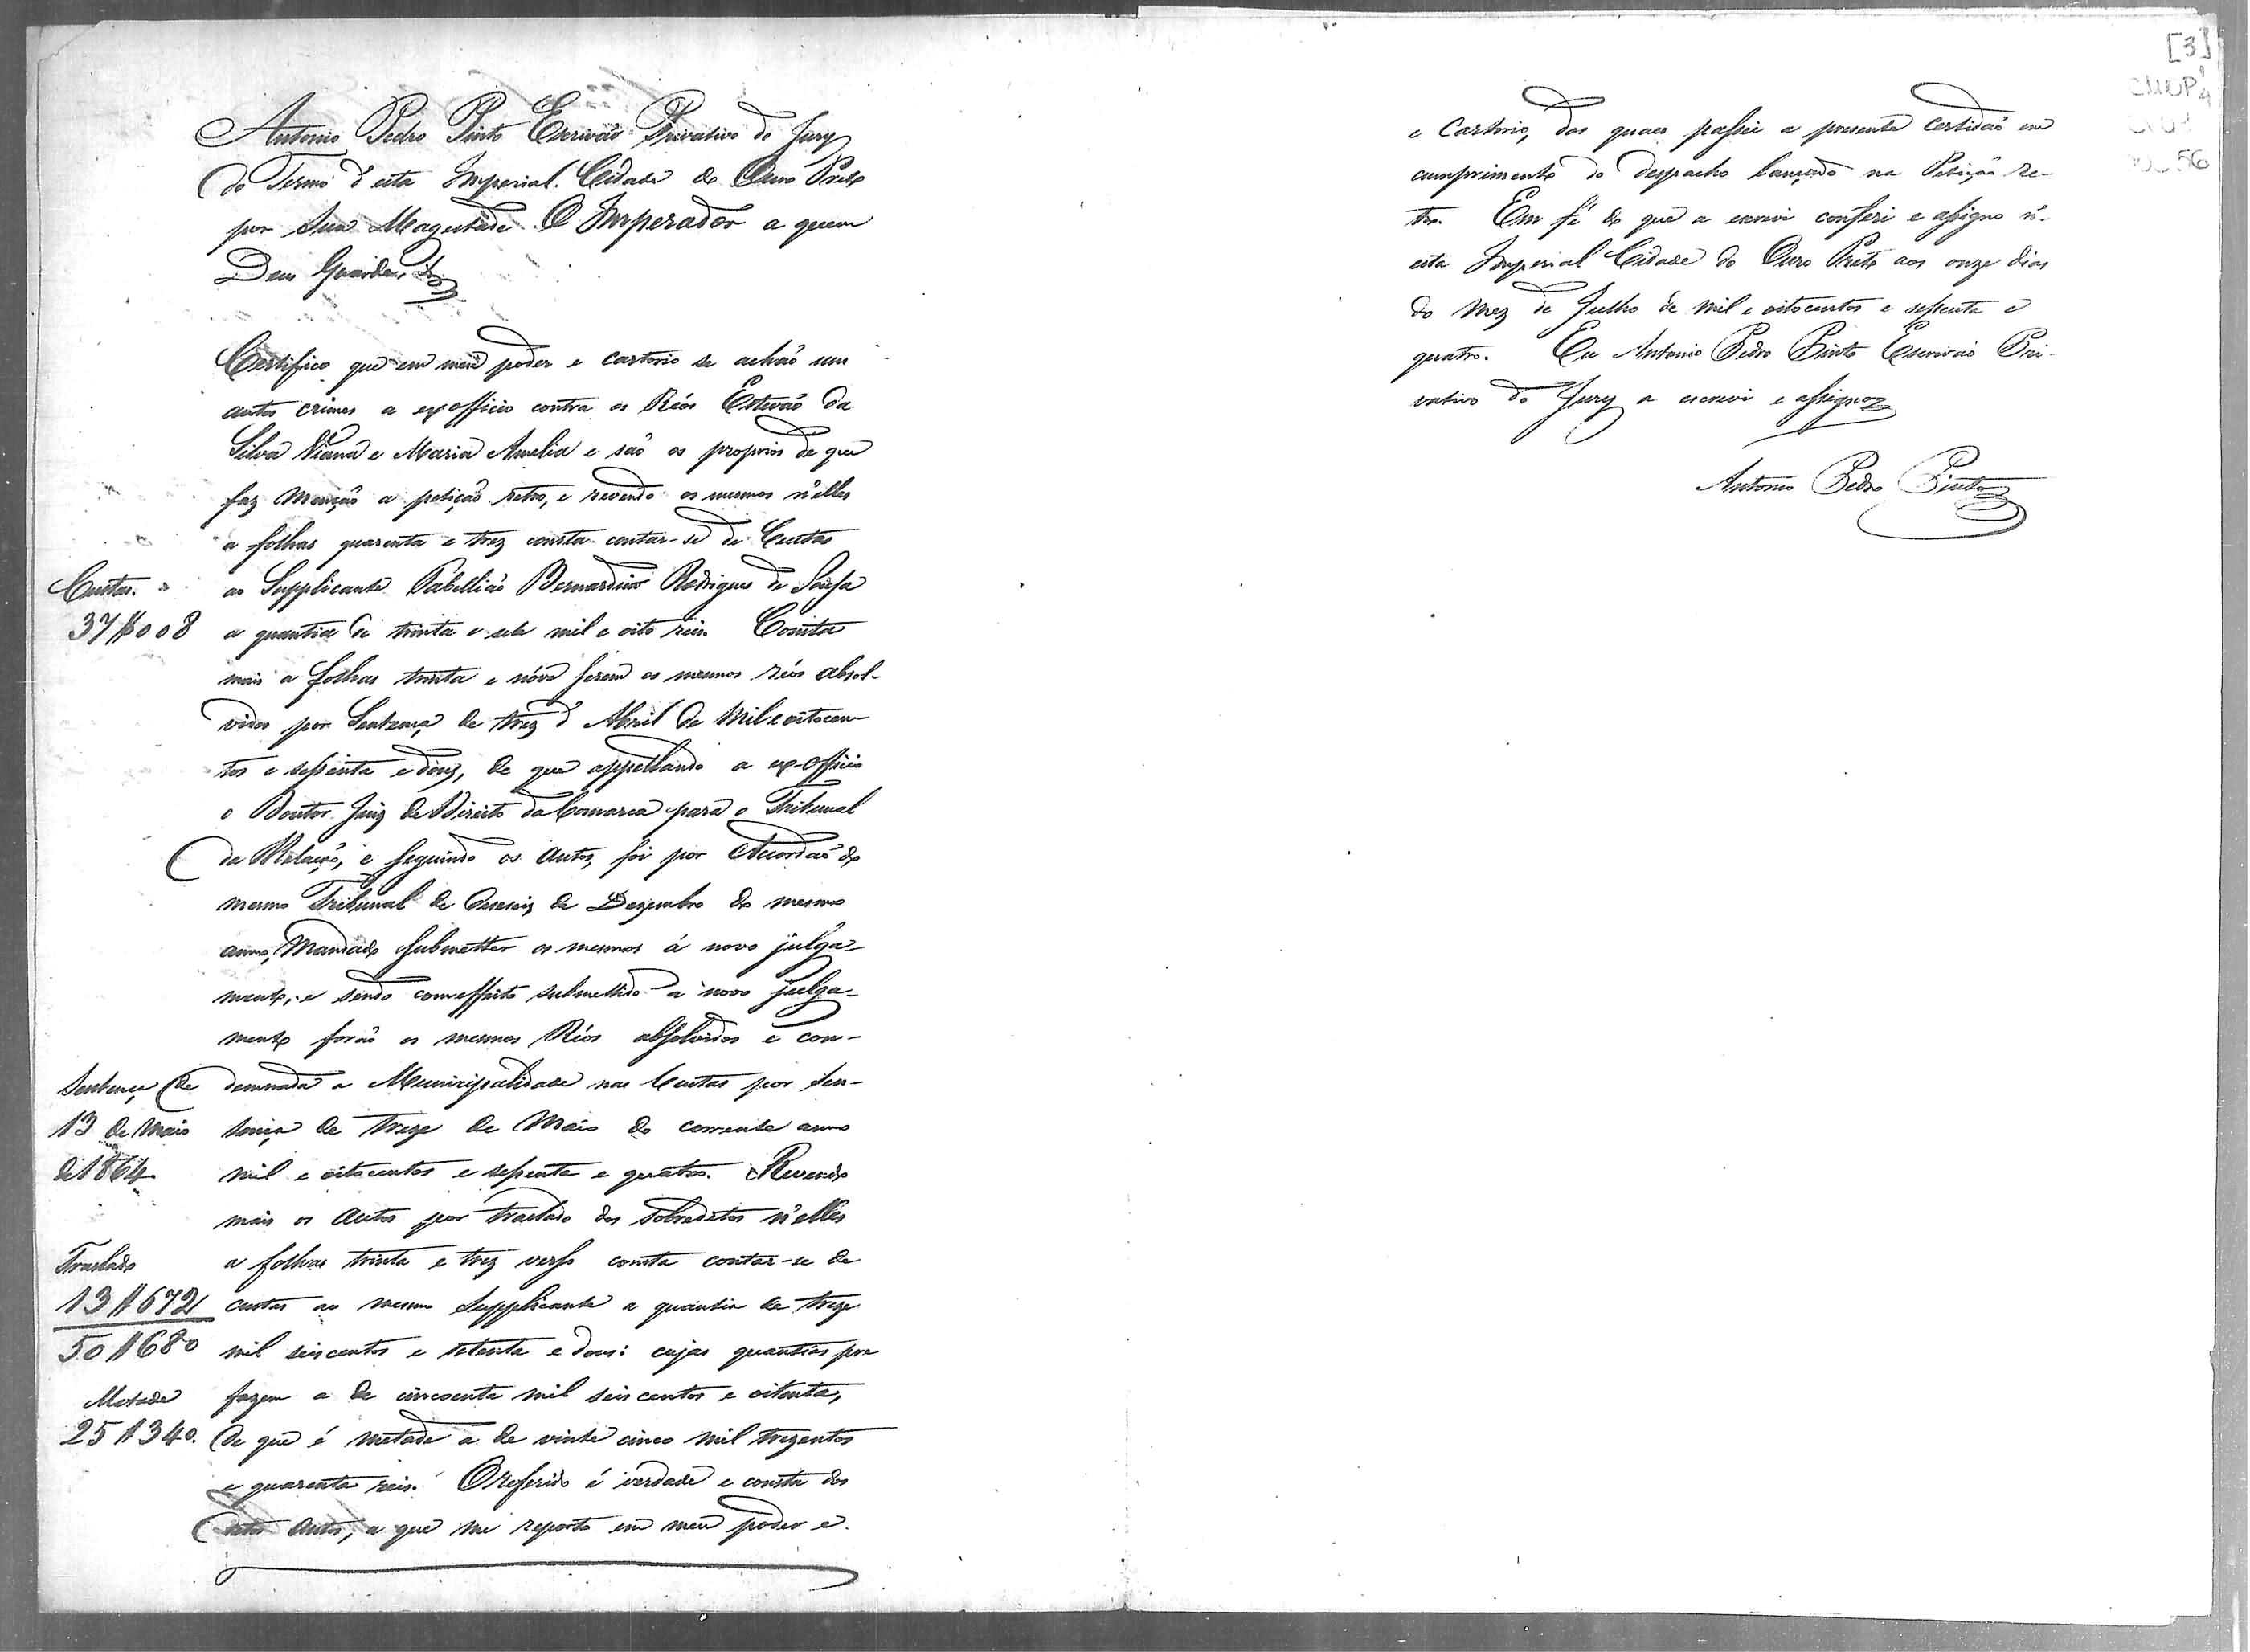 Antonio Pedro Pinto Escrivaõ Privativo do Jury
do Termo d'esta Imperial Cidade do Ouro Preto
por Sua Magestade O Imperador a quem
Deus Guarde, &
Certifico que em meu poder e cartorio se achaõ uns
autos crimes a exofficio contra os Réos Estevaõ da
Silva Viana e Maria Amelia e saõ os proprios de que
faz mençaõ a petiçaõ retro, e revendo os mesmos n'elles
a folhas quarenta e trez consta contar-se de Custas
Custas. ao Supplicante Tabelliaõ Bernardino Rodrigues de Sousa
37$008 a quantia de trinta e sete mil e oito reis. Consta
mais a folhas trinta e nóve serem os mesmos réos absol-
vidos por Sentença de trez d'Abril de Mil e oitocen-
tos e sessenta e douz, de que appellando a ex-officio
o Doutor Juiz de Direito da Comarca para o Tribunal
da Relaçaõ, e seguindo os Autos, foi por Accordaõ do
mesmo Tribunal de deseseis de Dezembro do mesmo
anno, Mandado submetter os mesmos á novo julga-
mento, e sendo comeffeito submettido a novo julga-
mento foraõ os mesmos Réos absolvidos e con-
Sentença de demnada a Municipalidade nas Custas por Sen-
13 de Maio tença de treze de Maio do corrente anno
de 1864. mil e oitocentos e sessenta e quatro. Revendo
mais os Autos por traslado dos sobreditos n'elles
Traslado a folhas trinta e trez verso consta contar-se de
13$672 custas ao mesmo Supplicante a quantia de treze
50$680 mil seiscentos e setenta e dous: cujas quantias per
Metade fazem a de cincoenta mil seis centos e oitenta,
25$340. de que é metade a de vinte cinco mil trezentos
e quarenta reis. O referido é verdade e consta dos
ditos Autos, a que me reporto em meu poder e
[3]
CMOP
56
e Cartorio, dos quaes passei a presente certidaõ em
cumprimento do despacho lançado na Petiçaõ re-
tro. Em fé do que a escrevi conferi e assigno n'-
esta Imperial Cidade do Ouro Preto aos onze dias
do Mez de Julho de mil e oitocentos e sessenta e
quatro. Eu Antonio Pedro Pinto Escrivaõ Pri-
vativo do Jury a escrevi e assigno
Antonio Pedro Pinto